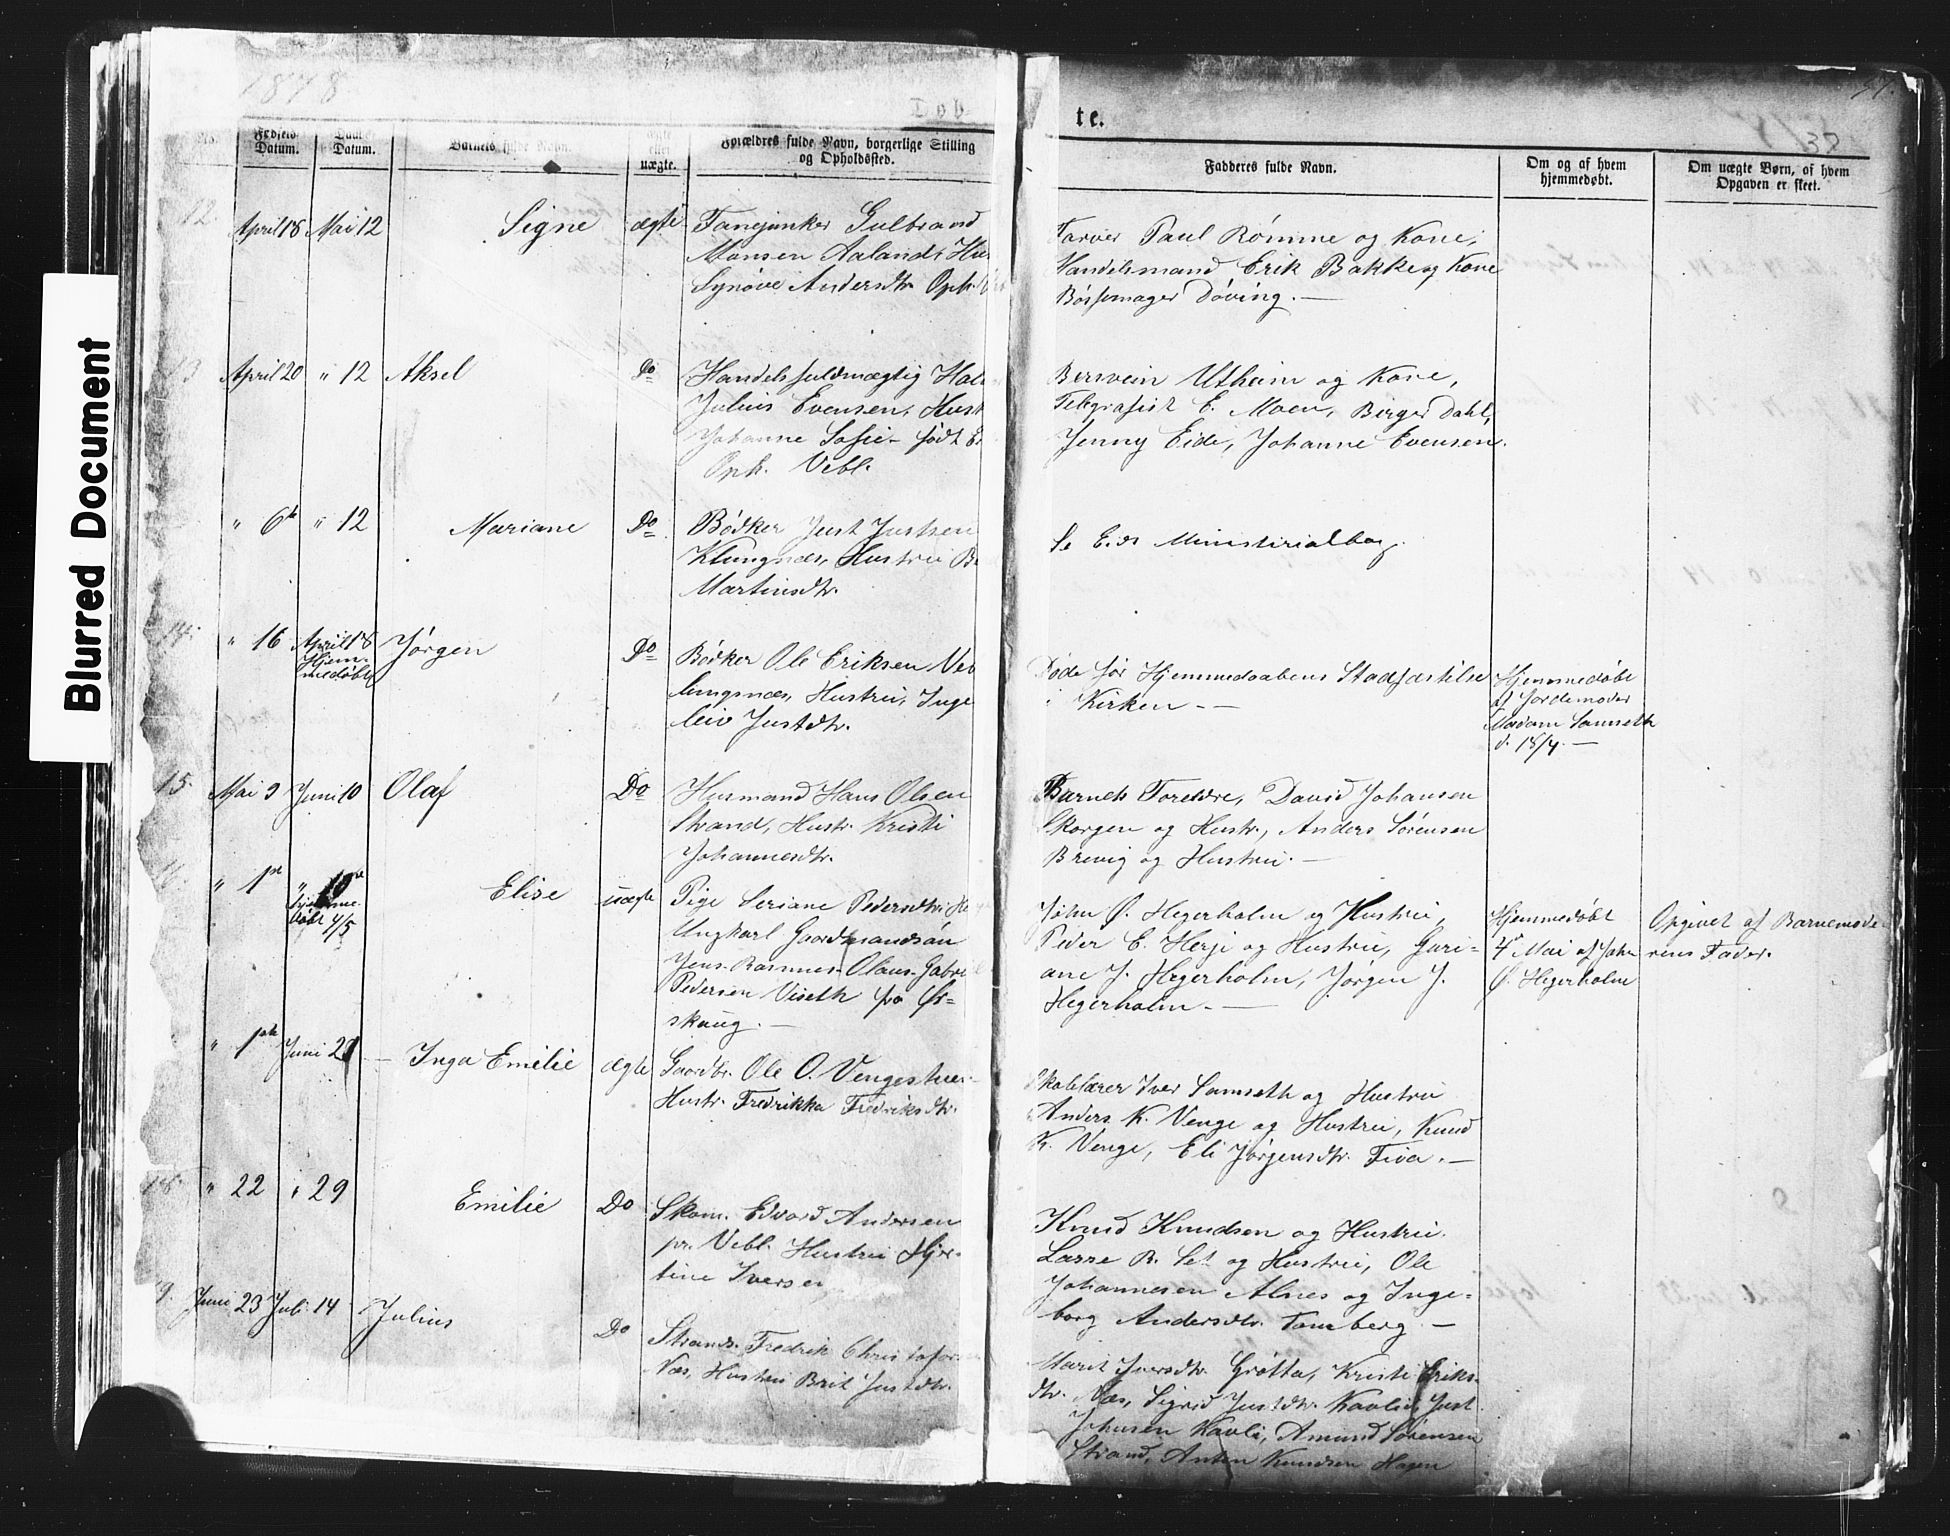 Blurred Document
1878
Døb
te.
37.
37
No.
Fødsels-
Datum.
Daabs-
Datum.
Barnets fulde Navn.
ægte
eller
uægte.
Forældres fulde Navn, borgerlige Stilling
og Opholdssted.
Fadderes fulde Navn.
Om og af hvem
hjemmedøbt.
Om uægte Børn, af hvem
Opgaven er skeet.
12. April 18 Mai 12 Signe ægte Fanejunker Gulbrand
Monsen Aaland, Hu
Synøve Andersdtr. Oph.
Farver Paul Rømme og Kone,
Handelsmand Erik Bakke og Kone
Bøssemager Døving. —
13 April 20 " 12 Aksel Do Handelsfuldmægtig Hal
Julius Evensen, Hust
Johanne Sofie født E
Oph. Vebl.
Bersvein Utheim og Kone,
Telegrafist E. Moen, Birger Dahl,
Jenny Eide, Johanne Evensen.
" 6te " 12 Mariane Do Bødker Just Justsen
Klungnæs, Hustru B
Martinsdtr.
Se Eids Ministerialbog.
14. " 16 April 18 Jørgen Do Bødker Ole Eriksen Veb
Hjem-
medøbt
lungsnæs, Hustru, Inge
leiv Justdtr.
Døde før Hjemmedaabens Stadfæstelse
i Kirken. —
Hjemmedøbt
af Jordemoder
Madam Samseth
d. 18/4. —
15. Mai 9 Juni 10 Olaf Do Husmand Hans Olsen
Strand, Hustr. Kristi
Johannesdtr.
Barnets Foreldre, David Johansen
Skorgen og Hustr., Anders Sørensen
Brevig og Hustru. —
16. " 1ste " 10de Elise uægte Pige Seriane Pedersdtr. He
Hjemme-
døbt 4/5
Ungkarl Gaardmandsøn
Jens Rasmus Olaus Gabri
Pedersen Viseth fra Ør=
skoug. —
John Ø. Hegerholm og Hustru,
Peder E. Herje og Hustru, Guri-
ane J. Hegerholm, Jørgen J.
Hegerholm. —
Hjemmedøbt
4de Mai af John
Ø. Hegerholm
Opgivet af Barnemode-
rens Fader.
" 1ste Juni 29 — Inga Emilie ægte Gaardbr. Ole O. Vengestuen
Hustr. Fredrikka Fredriksdtr.
Skolelærer Iver Samseth og Hustru
Anders K. Venge og Hustru, Knud
K. Venge, Eli Jørgensdtr. Fiva. —
18 " 22 " 29 Emilie Do Skom. Edvard Andersen
pr. Vebl. Hustru Hjer-
tine Iversen
Knud Knudsen og Hustru.
Lasse R. Set og Hustru, Ole
Johannesen Alnes og Inge-
borg Andersdtr. Tomberg —
19. Juni 23 Juli 14 Julius Do Strands. Fredrik Christofersen
Næs, Hustru Brit Justdtr.
Marit Iversdtr. Grøtta, Kristi Eriks-
dtr. Næs, Sigrid Justdtr. Kavli, Just
Johnsen Kavli, Amund Sørensen
Strand, Anton Knudsen Hagen